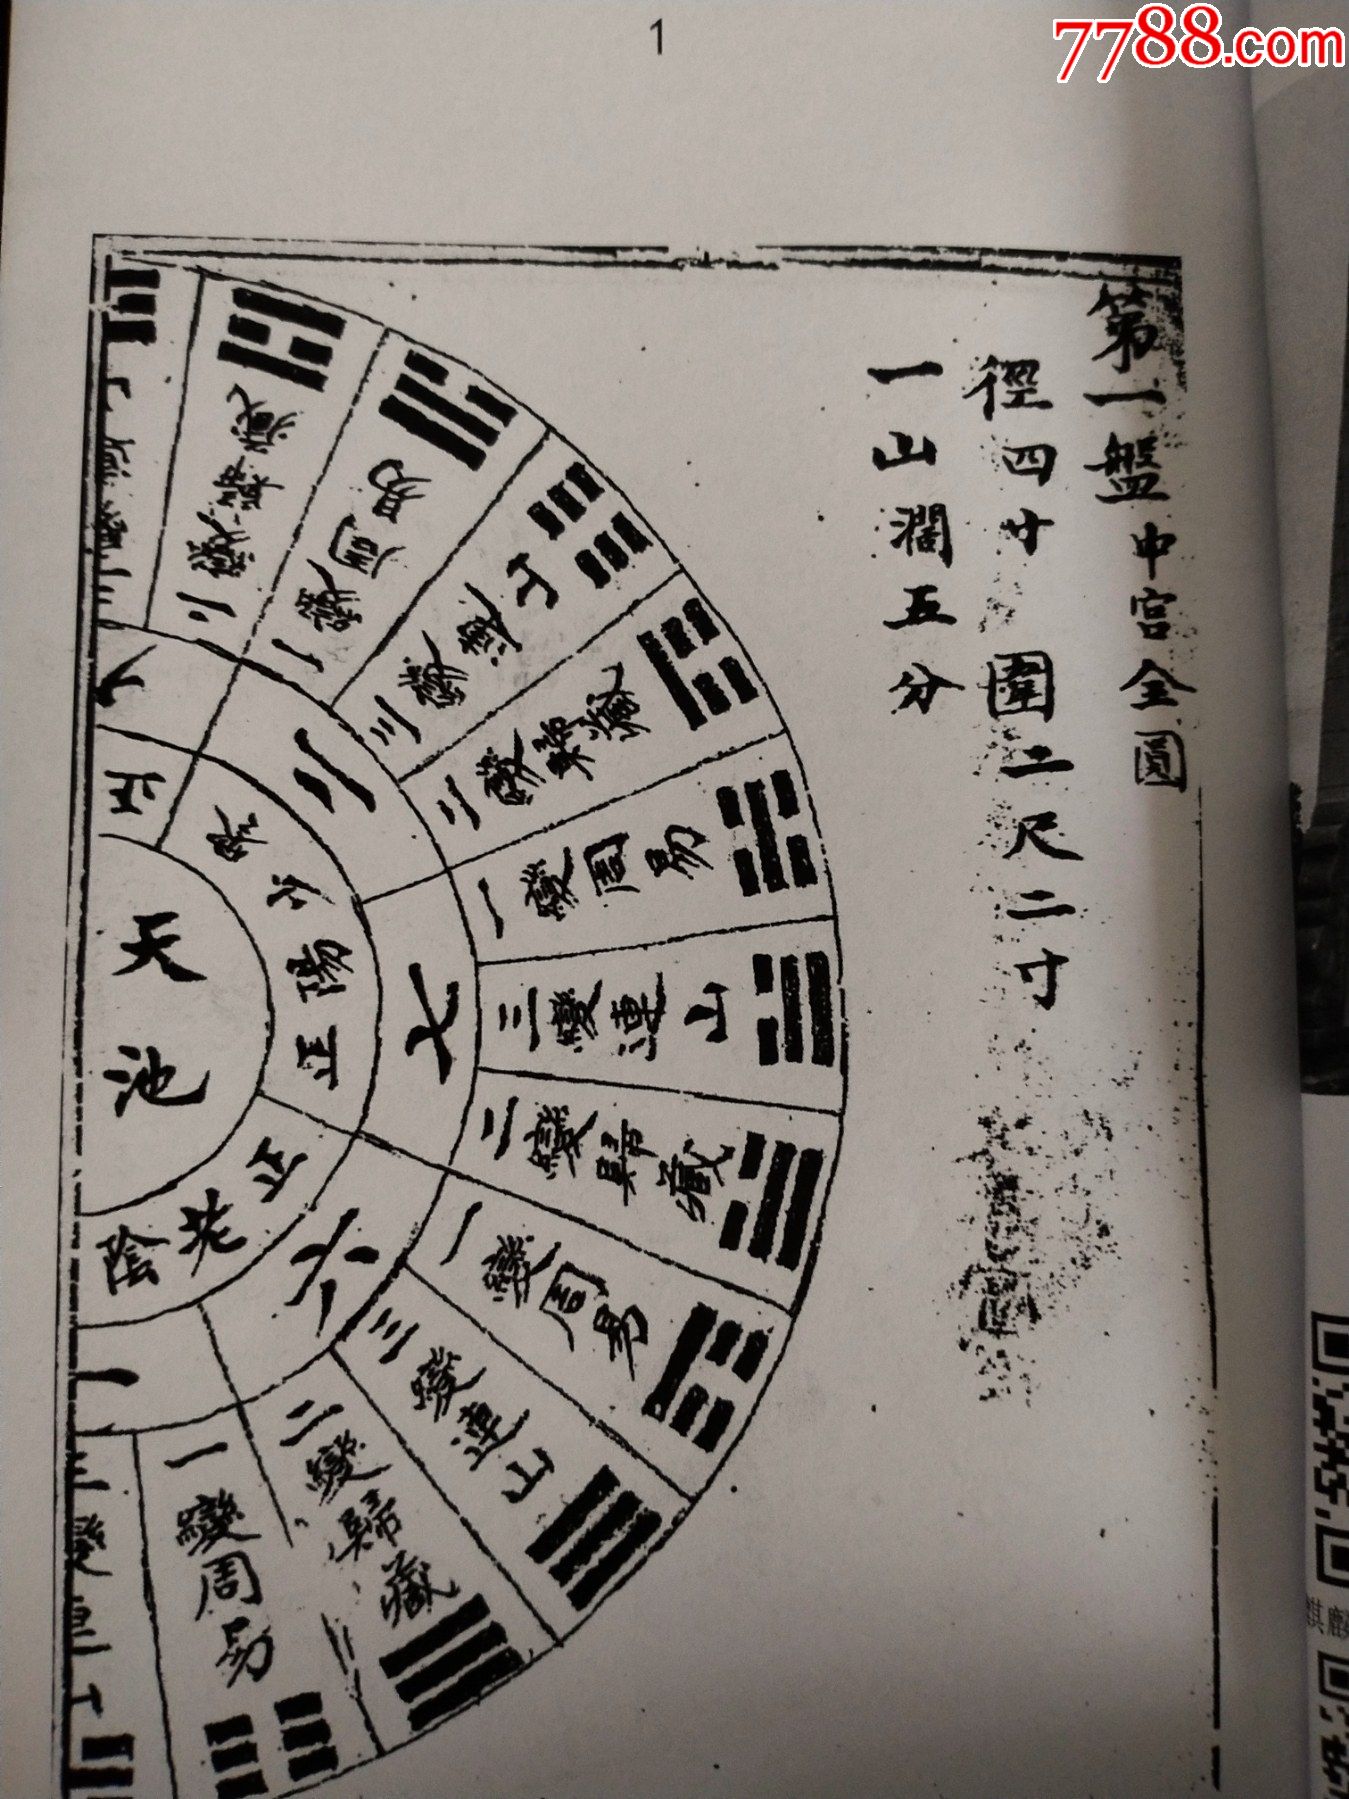 1
7788.com
第一盤中宮全圓
徑四寸 圍二尺二寸
一山濶五分
二變歸藏
一變周易
三變連山
二變歸藏
一變周易
三變連山
二變歸藏
一變周易
三變連山
二變歸藏
一變周易
二
七
六
一
正
少
陽
正
正
老
陰
天池